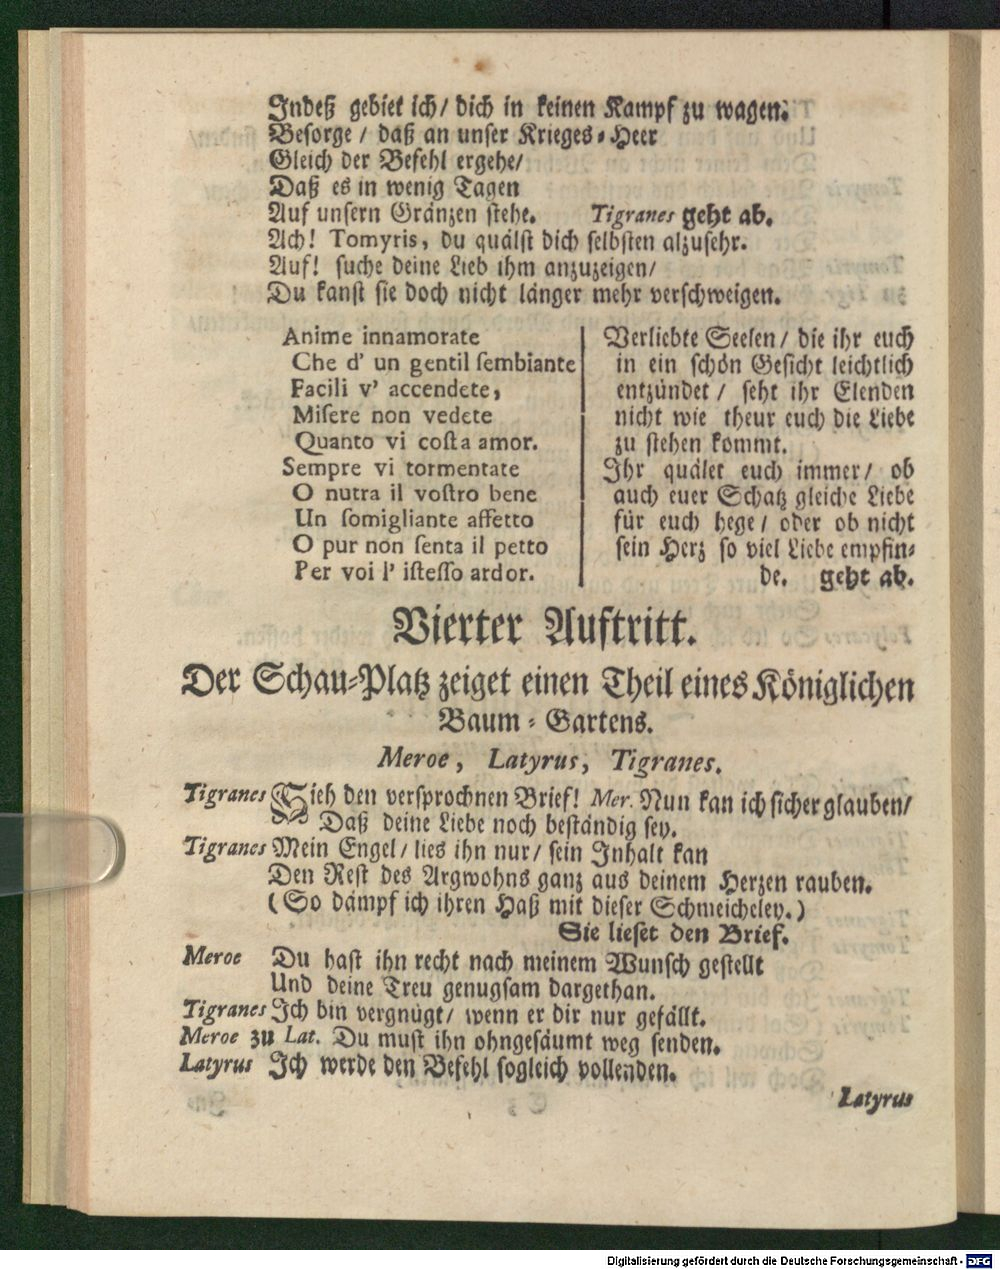 Indeß gebiet ich/ dich in keinen Kampf zu wagen.
Besorge / daß an unser Krieges-Heer
Gleich der Befehl ergehe/
Daß es in wenig Tagen
Auf unsern Gränzen stehe. Tigranes geht ab.
Ach! Tomyris, du quälst dich selbsten alzusehr.
Auf! suche deine Lieb ihm anzuzeigen/
Du kanst sie doch nicht länger mehr verschweigen.
Anime innamorate
Che d' un gentil sembiante
Facili v' accendete,
Misere non vedete
Quanto vi costa amor.
Sempre vi tormentate
O nutra il vostro bene
Un somigliante affetto
O pur non senta il petto
Per voi l' istesso ardor.
Verliebte Seelen/ die ihr euch
in ein schön Gesicht leichtlich
entzündet / seht ihr Elenden
nicht wie theur euch die Liebe
zu stehen kommt.
Ihr quälet euch immer/ ob
auch euer Schatz gleiche Liebe
für euch hege/ oder ob nicht
sein Herz so viel Liebe empfin-
de. geht ab.
Vierter Auftritt.
Der Schau-Platz zeiget einen Theil eines Königlichen
Baum-Gartens.
Meroe, Latyrus, Tigranes.
Tigranes Sieh den versprochnen Brief! Mer. Nun kan ich sicher glauben/
Daß deine Liebe noch beständig sey.
Tigranes Mein Engel/ lies ihn nur/ sein Inhalt kan
Den Rest des Argwohns ganz aus deinem Herzen rauben.
(So dämpf ich ihren Haß mit dieser Schmeicheley.)
Sie lieset den Brief.
Meroe Du hast ihn recht nach meinem Wunsch gestellt
Und deine Treu genugsam dargethan.
Tigranes Ich bin vergnügt/ wenn er dir nur gefällt.
Meroe zu Lat. Du must ihn ohngesäumt weg senden.
Latyrus Ich werde den Befehl sogleich vollenden.
Latyrus
Digitalisierung gefördert durch die Deutsche Forschungsgemeinschaft - DFG